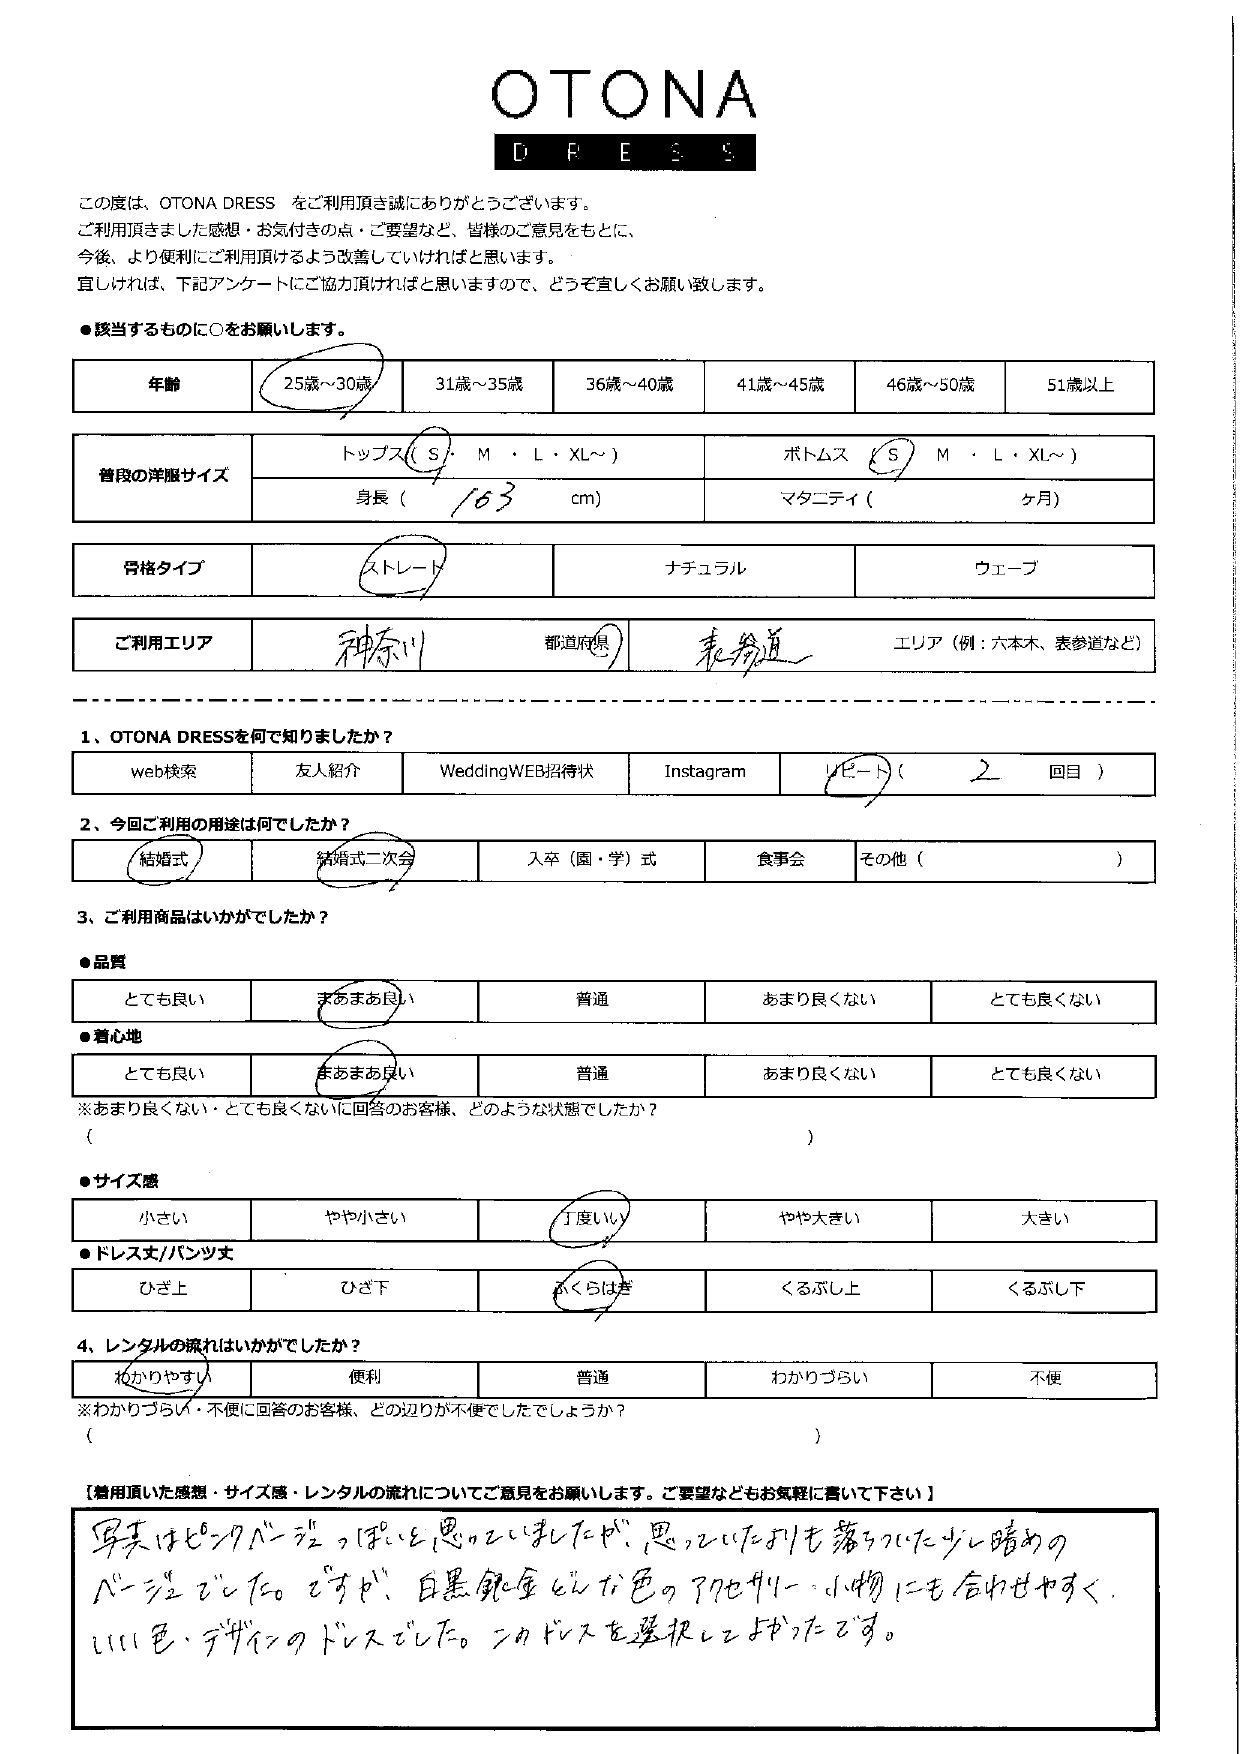 OTONA
DRESS
この度は、OTONA DRESS をご利用頂き誠にありがとうございます。
ご利用頂きました感想・お気付きの点・ご要望など、皆様のご意見をもとに、
今後、より便利にご利用頂けるよう改善していければと思います。
宜しければ、下記アンケートにご協力頂ければと思いますので、どうぞ宜しくお願い致します。
●該当するものに○をお願いします。
年齢 25歳～30歳 31歳～35歳 36歳～40歳 41歳～45歳 46歳～50歳 51歳以上
普段の洋服サイズ トップス( S ・ M ・ L ・ XL～ ) ボトムス ( S M ・ L ・ XL～ )
身長 ( 163 cm) マタニティ ( ケ月)
骨格タイプ ストレート ナチュラル ウェーブ
ご利用エリア 神奈川 都道府県 表参道 エリア（例：六本木、表参道など）
1、OTONA DRESSを何で知りましたか？
web検索 友人紹介 WeddingWEB招待状 Instagram リピート ( 2 回目 )
2、今回ご利用の用途は何でしたか？
結婚式 結婚式二次会 入卒（園・学）式 食事会 その他 ( )
3、ご利用商品はいかがでしたか？
●品質
とても良い まあまあ良い 普通 あまり良くない とても良くない
●着心地
とても良い まあまあ良い 普通 あまり良くない とても良くない
※あまり良くない・とても良くないに回答のお客様、どのような状態でしたか？
( )
●サイズ感
小さい やや小さい 丁度いい やや大きい 大きい
●ドレス丈/パンツ丈
ひざ上 ひざ下 ふくらはぎ くるぶし上 くるぶし下
4、レンタルの流れはいかがでしたか？
わかりやすい 便利 普通 わかりづらい 不便
※わかりづらい・不便に回答のお客様、どの辺りが不便でしたでしょうか？
( )
【着用頂いた感想・サイズ感・レンタルの流れについてご意見をお願いします。ご要望などもお気軽に書いて下さい】
写真はピンクベージュっぽいと思っていましたが、思っていたよりも落ちついた少し暗めの
ベージュでした。ですが、白黒銀金どんな色のアクセサリー・小物にも合わせやすく、
いい色・デザインのドレスでした。このドレスを選択してよかったです。